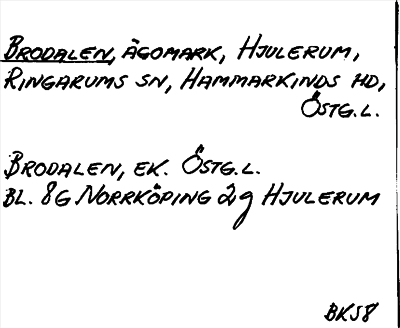 BRODALEN, ÄGOMARK, HJULERUM,
RINGARUMS SN, HAMMARKINDS HD,
ÖSTG.L.
BRODALEN, EK. ÖSTG.L.
BL. 8G NORRKÖPING 2g HJULERUM
BK58